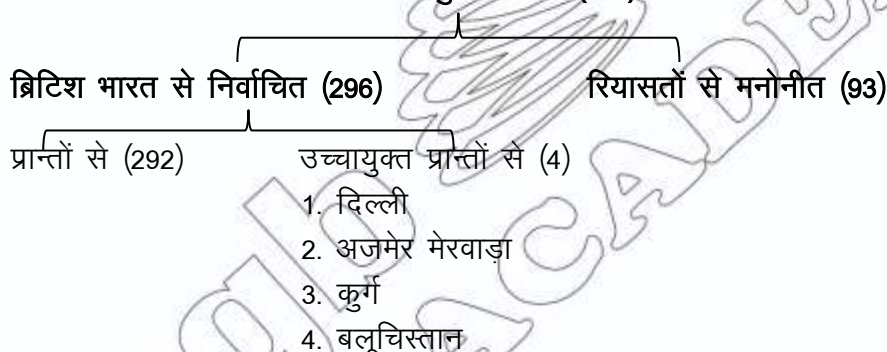 ब्रिटिश भारत से निर्वाचित (296) रियासतों से मनोनीत (93)
प्रान्तों से (292) उच्चायुक्त प्रान्तों से (4)
1. दिल्ली
2. अजमेर मेरवाड़ा
3. कुर्ग
4. बलूचिस्तान